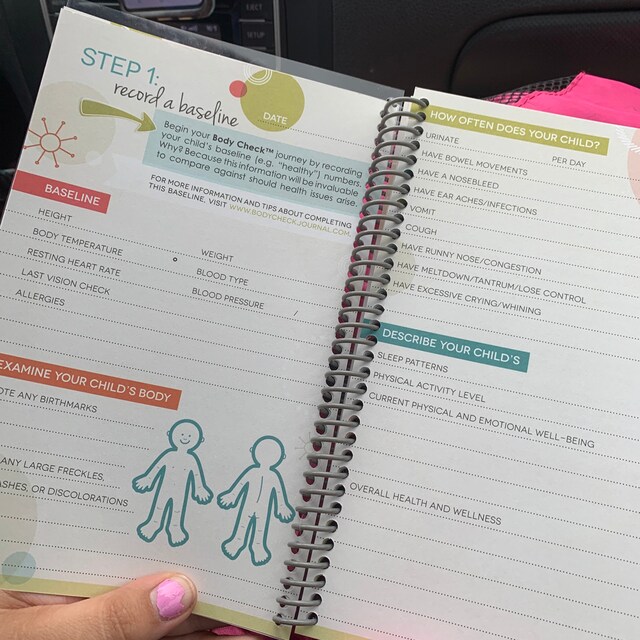 STEP 1:
record a baseline
DATE
Begin your Body Check™ journey by recording
your child's baseline (e.g. "healthy") numbers.
Why? Because this information will be invaluable
to compare against should health issues arise.
FOR MORE INFORMATION AND TIPS ABOUT COMPLETING
THIS BASELINE, VISIT WWW.BODYCHECKJOURNAL.COM.
BASELINE
HEIGHT
WEIGHT
BODY TEMPERATURE °
BLOOD TYPE
RESTING HEART RATE
BLOOD PRESSURE /
LAST VISION CHECK
ALLERGIES
EXAMINE YOUR CHILD'S BODY
OTE ANY BIRTHMARKS
ANY LARGE FRECKLES,
ASHES, OR DISCOLORATIONS
HOW OFTEN DOES YOUR CHILD?
URINATE PER DAY
HAVE BOWEL MOVEMENTS
HAVE A NOSEBLEED
HAVE EAR ACHES/INFECTIONS
VOMIT
COUGH
HAVE RUNNY NOSE/CONGESTION
HAVE MELTDOWN/TANTRUM/LOSE CONTROL
HAVE EXCESSIVE CRYING/WHINING
DESCRIBE YOUR CHILD'S
SLEEP PATTERNS
PHYSICAL ACTIVITY LEVEL
CURRENT PHYSICAL AND EMOTIONAL WELL-BEING
OVERALL HEALTH AND WELLNESS